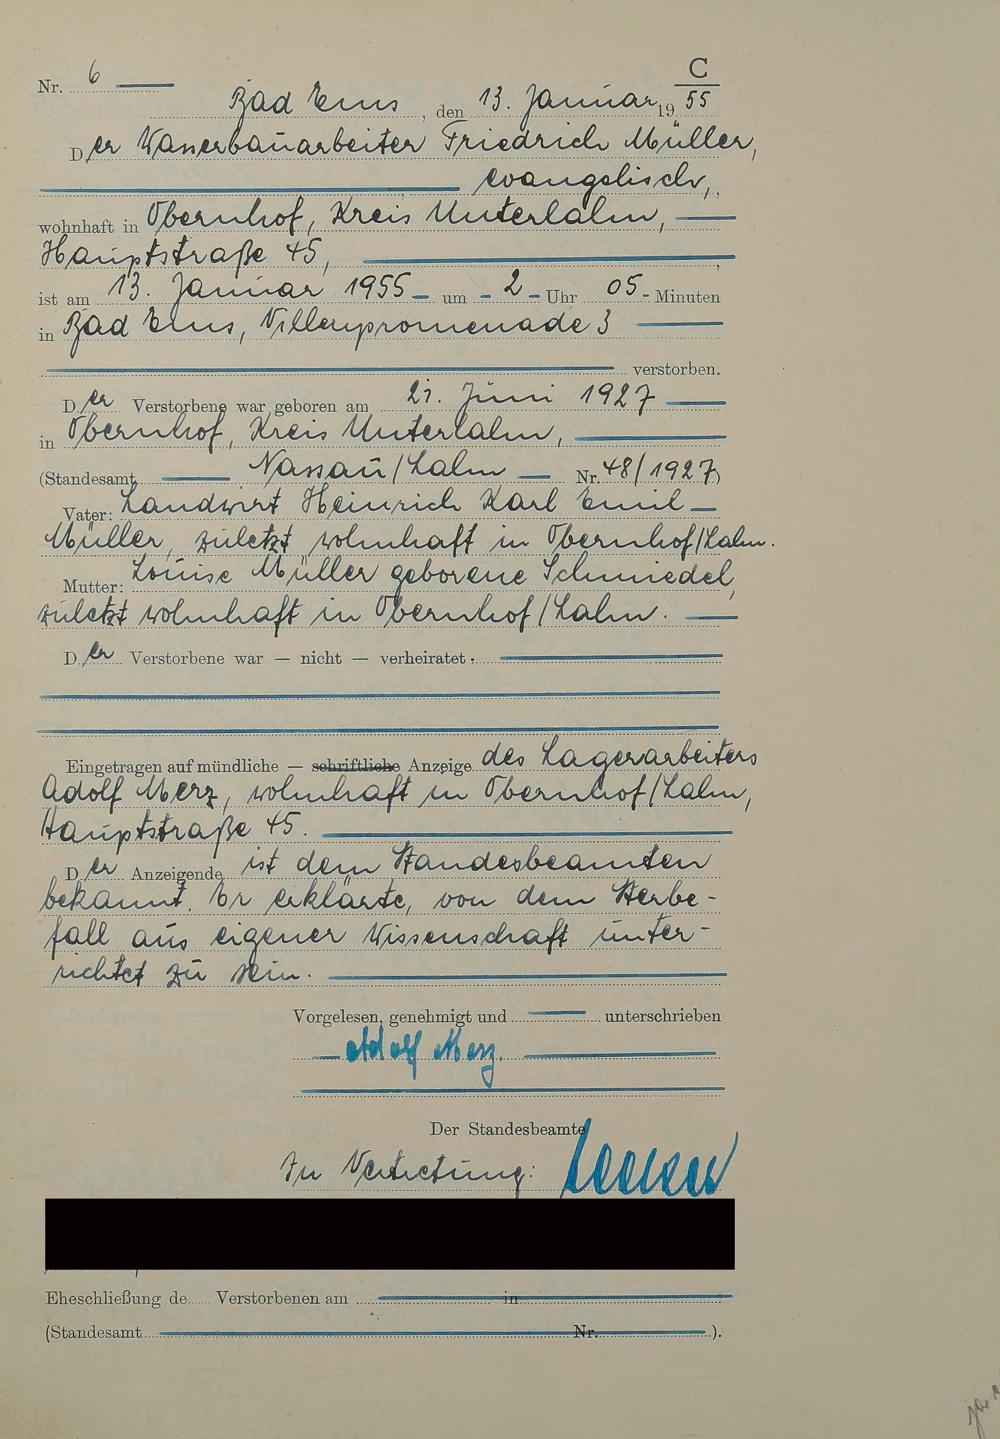 C
Nr. 6
Bad Ems, den 13. Januar 1955
Der Wasserbauarbeiter Friedrich Müller,
evangelisch,
wohnhaft in Obernhof, Kreis Unterlahn,
Hauptstraße 45,
ist am 13. Januar 1955 um 2 Uhr 05 Minuten
in Bad Ems, Villenpromenade 3
verstorben.
Der Verstorbene war geboren am 21. Juni 1927
in Obernhof, Kreis Unterlahn,
(Standesamt Nassau/Lahn Nr. 48/1927)
Vater: Landwirt Heinrich Karl Emil
Müller, zuletzt wohnhaft in Obernhof/Lahn.
Mutter: Louise Müller geborene Schmiedel,
zuletzt wohnhaft in Obernhof/Lahn.
Der Verstorbene war — nicht — verheiratet.
Eingetragen auf mündliche — schriftliche Anzeige des Lagerarbeiters
Adolf Merz, wohnhaft in Obernhof/Lahn,
Hauptstraße 45.
Der Anzeigende ist dem Standesbeamten
bekannt. Er erklärte, von dem Sterbe-
fall aus eigener Wissenschaft unter-
richtet zu sein.
Vorgelesen, genehmigt und unterschrieben
Adolf Merz.
Der Standesbeamte
In Vertretung:
Eheschließung de Verstorbenen am in
(Standesamt Nr. ).